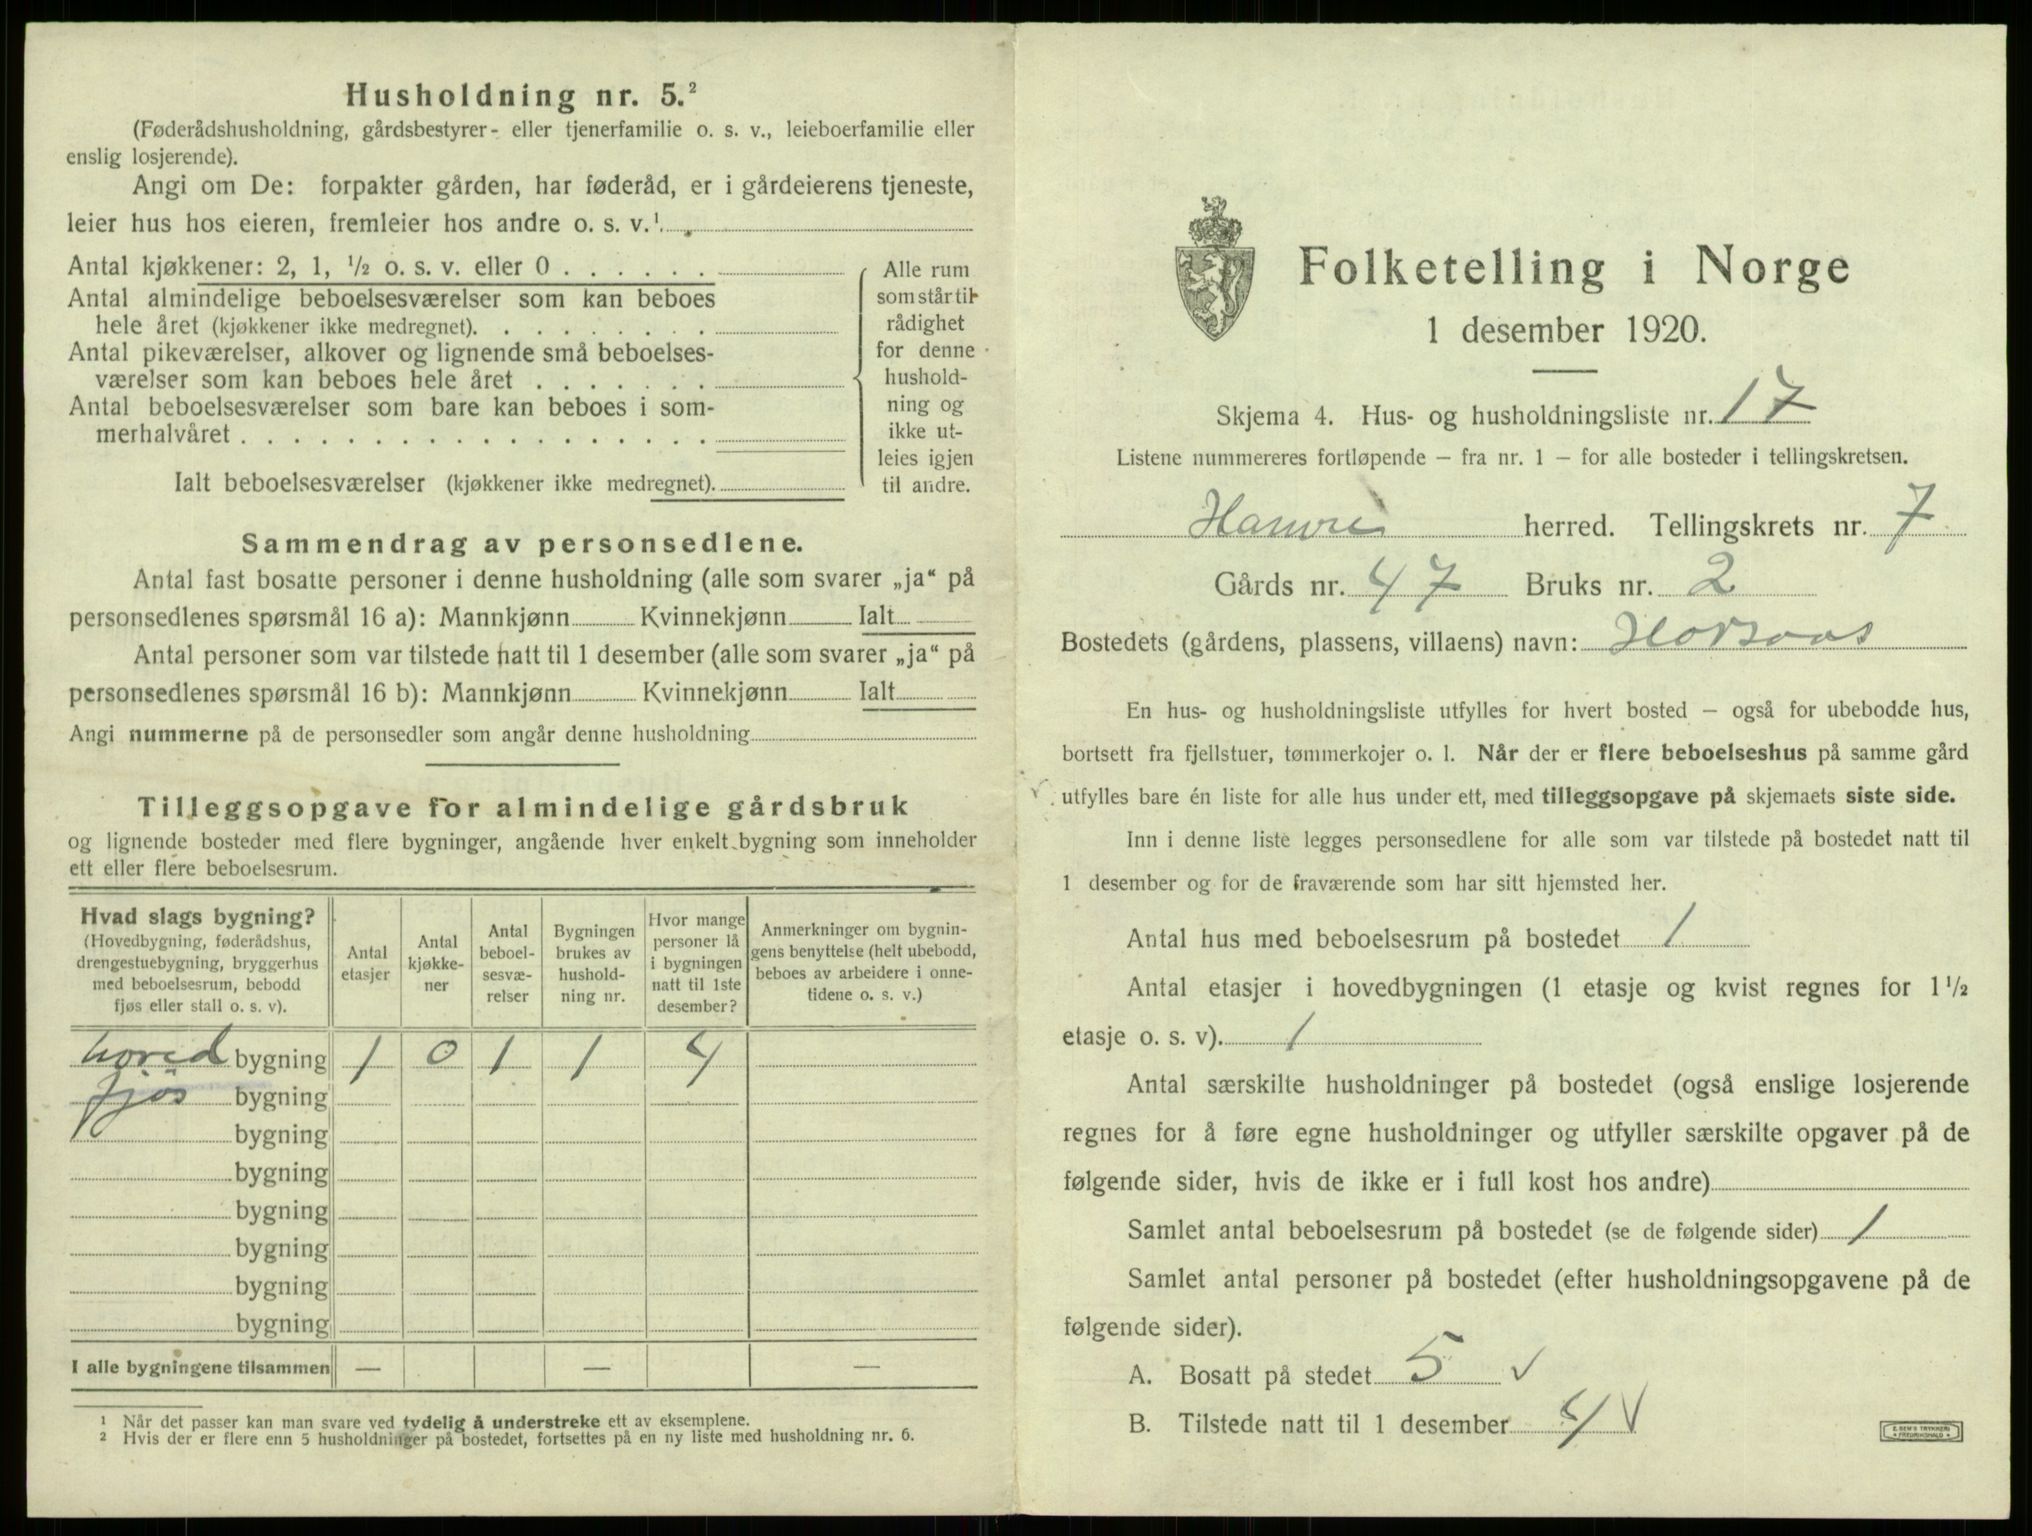 Husholdning nr. 5.²
(Føderådshusholdning, gårdsbestyrer- eller tjenerfamilie o. s. v., leieboerfamilie eller
enslig losjerende).
Angi om De: forpakter gården, har føderåd, er i gårdeierens tjeneste,
leier hus hos eieren, fremleier hos andre o. s. v.¹
Antal kjøkkener: 2, 1, ½ o. s. v. eller 0
Antal almindelige beboelsesværelser som kan beboes
hele året (kjøkkener ikke medregnet).
Antal pikeværelser, alkover og lignende små beboelses-
værelser som kan beboes hele året
Antal beboelsesværelser som bare kan beboes i som-
merhalvåret
Ialt beboelsesværelser (kjøkkener ikke medregnet).
Alle rum
som står til
rådighet
for denne
hushold-
ning og
ikke ut-
leies igjen
til andre.
Sammendrag av personsedlene.
Antal fast bosatte personer i denne husholdning (alle som svarer „ja“ på
personsedlenes spørsmål 16 a): Mannkjønn Kvinnekjønn Ialt
Antal personer som var tilstede natt til 1 desember (alle som svarer „ja“ på
personsedlenes spørsmål 16 b): Mannkjønn Kvinnekjønn Ialt
Angi nummerne på de personsedler som angår denne husholdning
Tilleggsopgave for almindelige gårdsbruk
og lignende bosteder med flere bygninger, angående hver enkelt bygning som inneholder
ett eller flere beboelsesrum.
Hvad slags bygning?
(Hovedbygning, føderådshus,
drengestuebygning, bryggerhus
med beboelsesrum, bebodd
fjøs eller stall o. s. v).
Antal
etasjer
Antal
kjøkke-
ner
Antal
beboel-
sesvæ-
relser
Bygningen
brukes av
hushold-
ning nr.
Hvor mange
personer lå
i bygningen
natt til 1ste
desember?
Anmerkninger om bygnin-
gens benyttelse (helt ubebodd,
beboes av arbeidere i onne-
tidene o. s. v.)
hoved bygning 1 0 1 1 4
fjös bygning
bygning
bygning
bygning
bygning
bygning
bygning
I alle bygningene tilsammen — — —
¹ Når det passer kan man svare ved tydelig å understreke ett av eksemplene.
² Hvis der er flere enn 5 husholdninger på bostedet, fortsettes på en ny liste med husholdning nr. 6.
Folketelling i Norge
1 desember 1920.
Skjema 4. Hus- og husholdningsliste nr. 17
Listene nummereres fortløpende — fra nr. 1 — for alle bosteder i tellingskretsen.
Hamre herred. Tellingskrets nr. 7
Gårds nr. 47 Bruks nr. 2
Bostedets (gårdens, plassens, villaens) navn: Horsaas
En hus- og husholdningsliste utfylles for hvert bosted — også for ubebodde hus,
bortsett fra fjellstuer, tømmerkojer o. l. Når der er flere beboelseshus på samme gård
utfylles bare én liste for alle hus under ett, med tilleggsopgave på skjemaets siste side.
Inn i denne liste legges personsedlene for alle som var tilstede på bostedet natt til
1 desember og for de fraværende som har sitt hjemsted her.
Antal hus med beboelsesrum på bostedet 1
Antal etasjer i hovedbygningen (1 etasje og kvist regnes for 1 ½
etasje o. s. v). 1
Antal særskilte husholdninger på bostedet (også enslige losjerende
regnes for å føre egne husholdninger og utfyller særskilte opgaver på de
følgende sider, hvis de ikke er i full kost hos andre)
Samlet antal beboelsesrum på bostedet (se de følgende sider) 1
Samlet antal personer på bostedet (efter husholdningsopgavene på de
følgende sider).
A. Bosatt på stedet 5 √
B. Tilstede natt til 1 desember 4 √